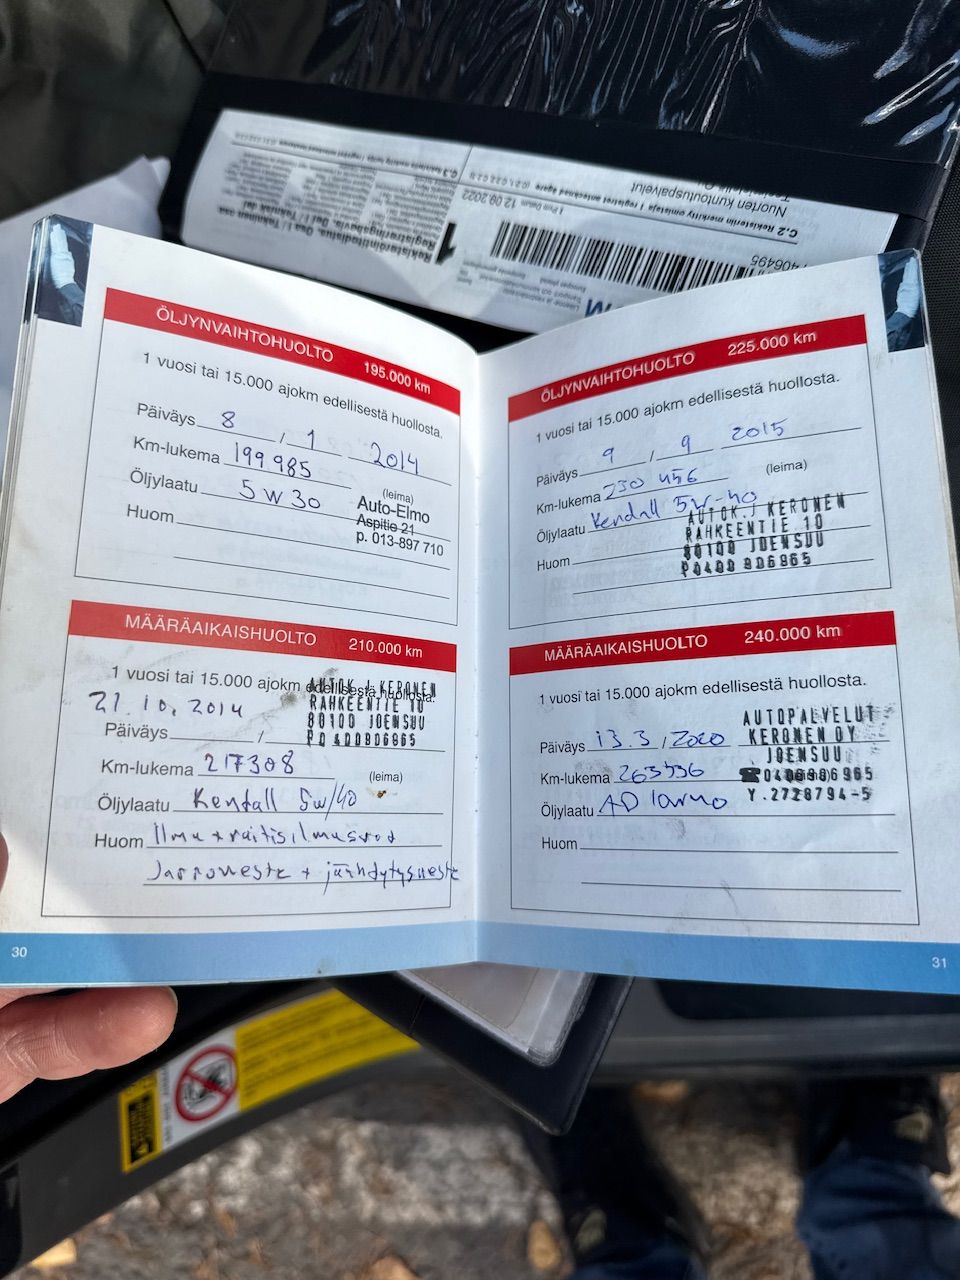 C.2 Rekisteriin merkitty omistaja / registrerad ägare (C.2.1, C.2.2, C.2.3)
Nuorten kuntoutuspalvelut
12.09.2022
406495
Rekisteröintitodistus, Osa I / Tekninen osa
Registreringsbevis, Del I / Teknisk del
1
ÖLJYNVAIHTOHUOLTO 195.000 km
1 vuosi tai 15.000 ajokm edellisestä huollosta.
Päiväys 8 / 1 2014
Km-lukema 199985
(leima)
Öljylaatu 5W30
Auto-Elmo
Aspitie 21
p. 013-897 710
Huom
MÄÄRÄAIKAISHUOLTO 210.000 km
1 vuosi tai 15.000 ajokm edellisestä huollosta.
AUTOK.J KERONEN
RAHKEENTIE 10
80100 JOENSUU
P0400806965
21.10.2014
Päiväys /
Km-lukema 217308
(leima)
Öljylaatu Kendall 5W/40
Huom Ilma + raitisilmasuod
Jarruneste + jäähdytysneste
30
ÖLJYNVAIHTOHUOLTO 225.000 km
1 vuosi tai 15.000 ajokm edellisestä huollosta.
Päiväys 9 / 9 2015
(leima)
Km-lukema 230 456
Öljylaatu Kendall 5W-40
AUTOK.J KERONEN
RAHKEENTIE 10
80100 JOENSUU
P0400 806965
Huom
MÄÄRÄAIKAISHUOLTO 240.000 km
1 vuosi tai 15.000 ajokm edellisestä huollosta.
AUTOPALVELUT
KERONEN OY
JOENSUU
Y.2728794-5
Päiväys 13.3 / 2020
Km-lukema
Öljylaatu AD
Huom
31